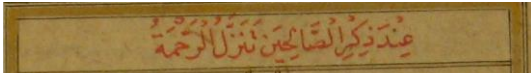 عِنْدَ ذِكْرِ الصَّالِحِينَ تَنَزَّلُ الرَّحْمَةُ